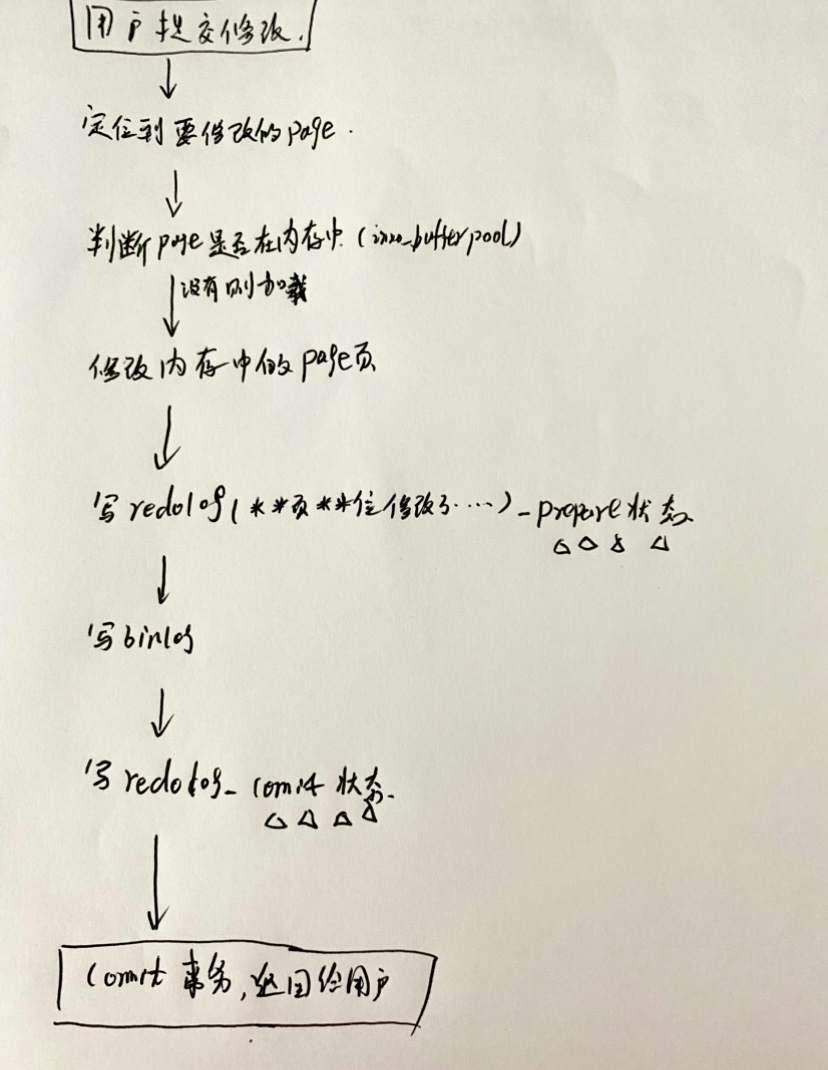 用户提交修改.
定位到要修改的page.
判断page是否在内存中.(inno_bufferpool)
没有则加载
修改内存中的page页
写redolog(**页**位修改了....)-prepare状态
写binlog
写redolog-comit状态.
comit事务,返回给用户